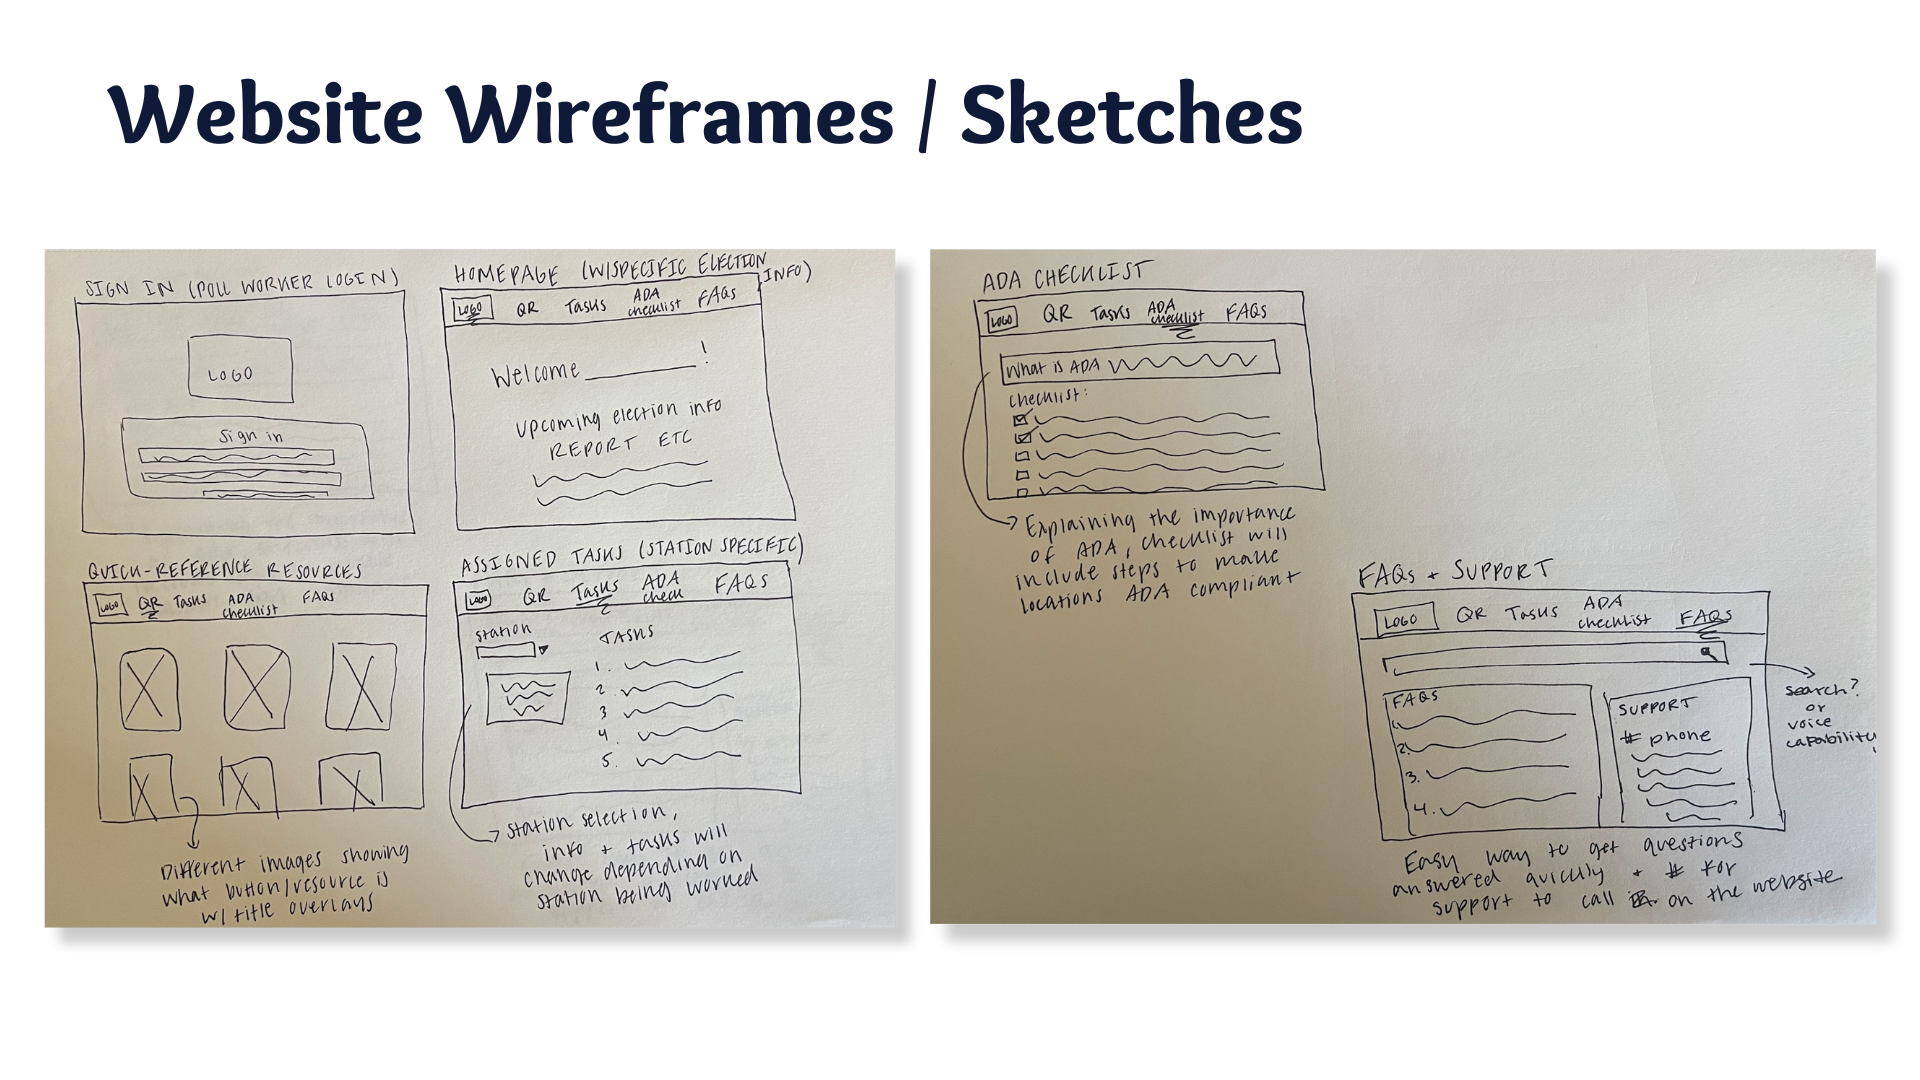 Website Wireframes / Sketches
SIGN IN (POLL WORKER LOGIN)
LOGO
Sign in
HOMEPAGE (W/SPECIFIC ELECTION
INFO)
LOGO QR Tasks ADA FAQs
checklist
Welcome !
Upcoming election info
REPORT ETC
QUICK-REFERENCE RESOURCES
LOGO QR Tasks ADA FAQs
checklist
Different images showing
what button/resource is
w/ title overlays
ASSIGNED TASKS (STATION SPECIFIC)
LOGO QR Tasks ADA FAQS
check
station
TASKS
1.
2.
3
4.
5.
station selection,
info + tasks will
change depending on
station being worked
ADA CHECKLIST
LOGO QR Tasks ADA FAQs
checklist
What is ADA
checklist:
Explaining the importance
of ADA, checklist will
include steps to make
locations ADA compliant
FAQs + SUPPORT
LOGO QR Tasks ADA FAQs
checklist
search?
or
voice
capability
FAQS
1.
2.
3.
4.
SUPPORT
# phone
Easy way to get questions
answered quickly + # for
support to call on the website